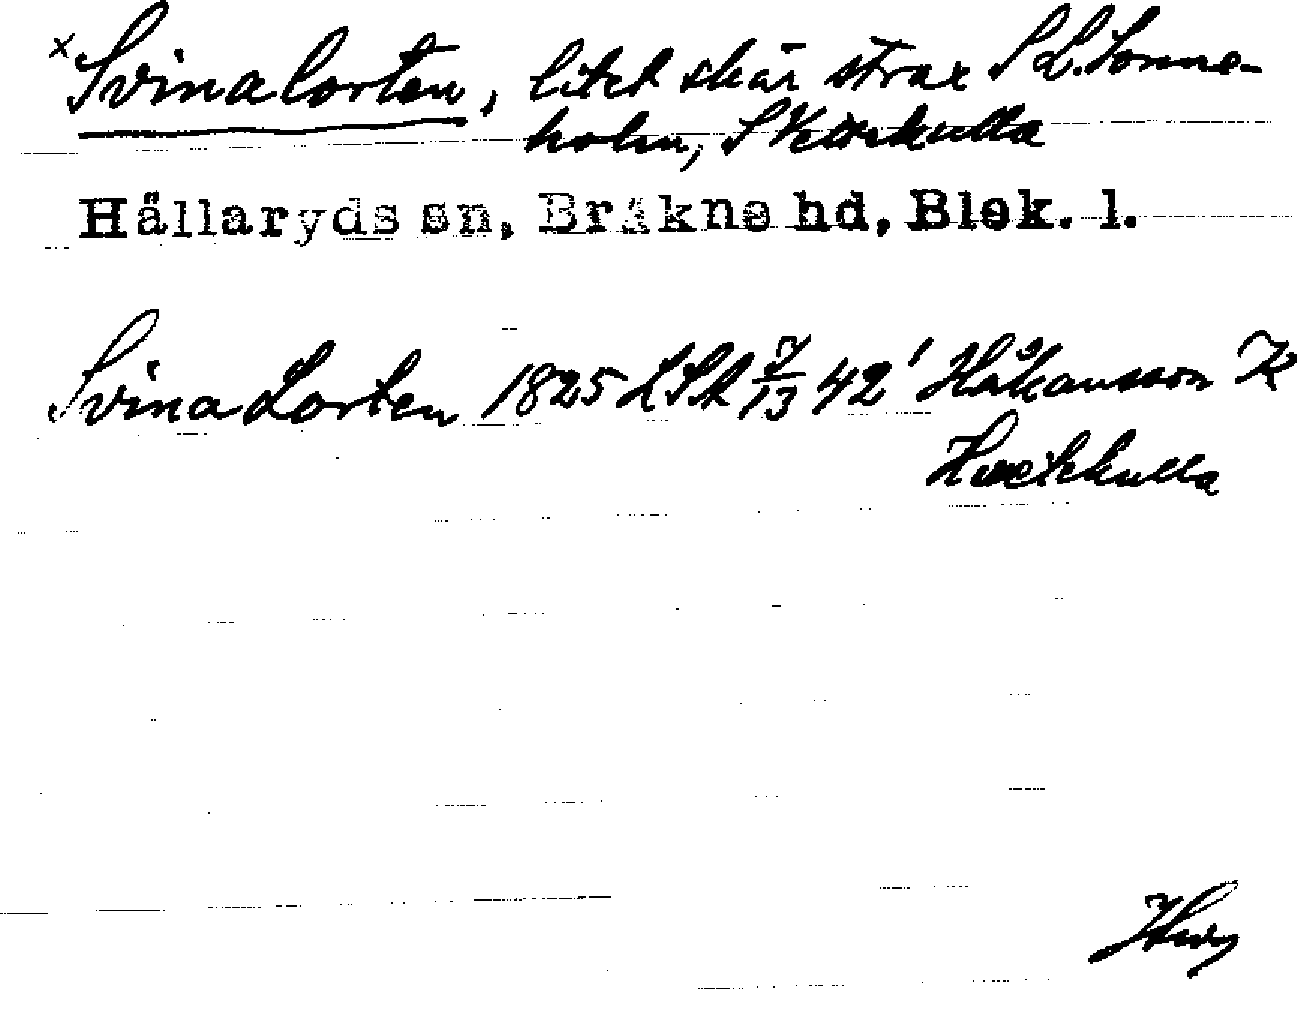 × Svinalorten, litet skär strax S L. Sonne-
holm, S Vettekulla
Hällaryds sn, Bräkne hd, Blek. l.
Svina Lorten 1825 LSA 7/13 42' Håkansson K
Hvetekulla